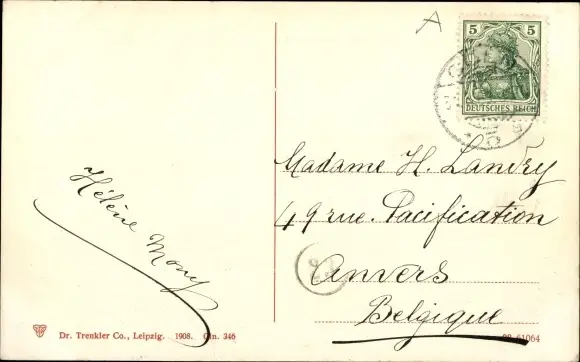 A
5 5
DEUTSCHES REICH
Madame H. Landry
49 rue. Pacification
Anvers
Belgique
Hélène Mony
Dr. Trenkler Co., Leipzig. 1908. Cln. 346
61064